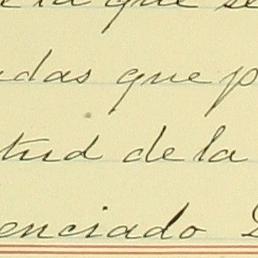 la que se
das que p
tud de la
enciado D